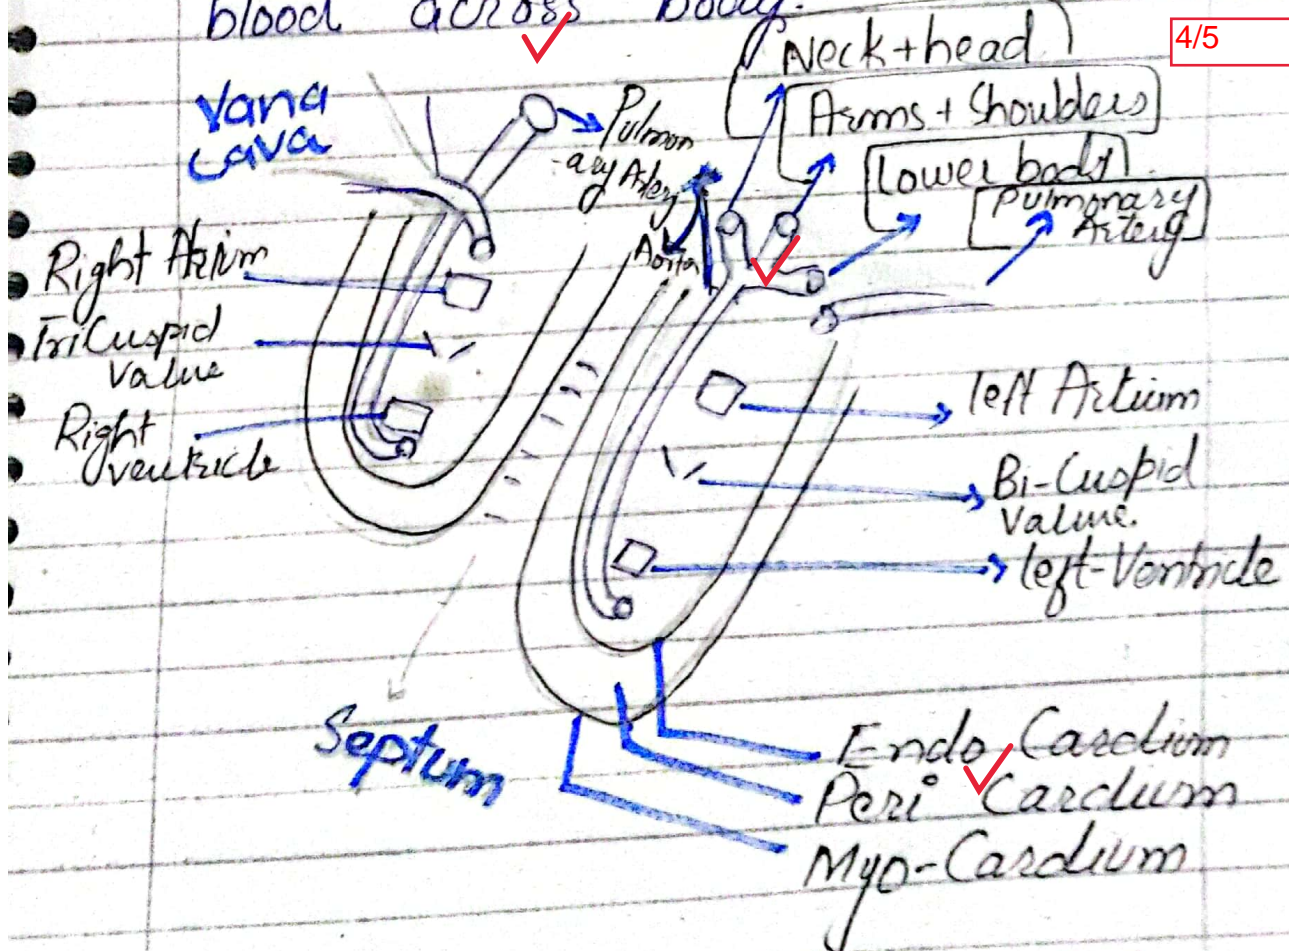 blood across body.
4/5
Neck+head
Vana
Cava
Pulmon
-ary Artery
Arms + Shoulders
Lower body
Pulmonary
Artery
Aorta
Right Atrium
TriCuspid
Value
Right
ventricle
left Artium
Bi-Cuspid
Value.
left-Ventricle
Septum
Endo Cardium
Peri Cardium
Myo-Cardium